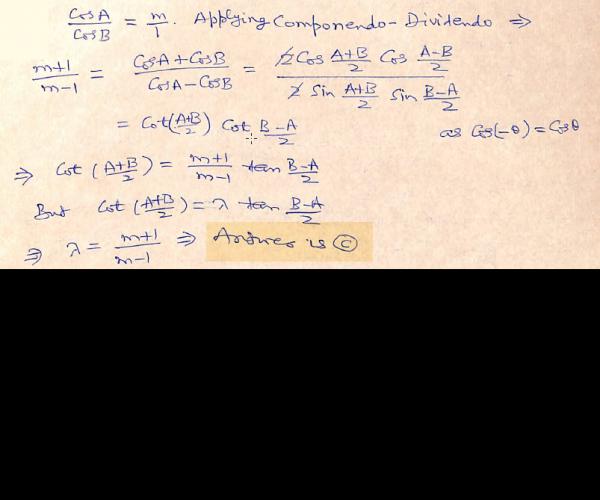 CosA/CosB = m/1. Applying Componendo-Dividendo ⇒
m+1/m-1 = CosA+CosB/CosA-CosB = 2 Cos A+B/2 Cos A-B/2 / 2 Sin A+B/2 Sin B-A/2
= Cot(A+B/2) Cot B-A/2 as Cos(-θ)=Cosθ
⇒ Cot (A+B/2) = m+1/m-1 tan B-A/2
But Cot (A+B/2) = λ tan B-A/2
⇒ λ = m+1/m-1 ⇒ Answer is Ⓒ